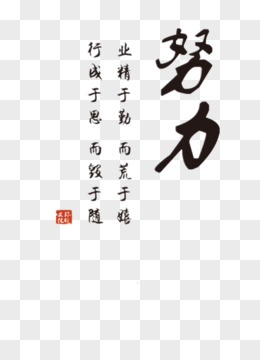 努力
业精于勤 而荒于嬉
行成于思 而毁于随